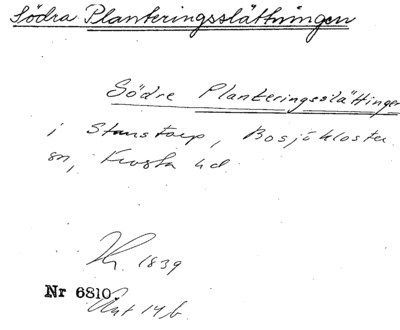 Södra Planteringsslättningen
Södre Planteringsslättingen
i Stanstorp, Bosjökloster
sn, Frosta hd
1839
Nr 6810
Akt 14b.